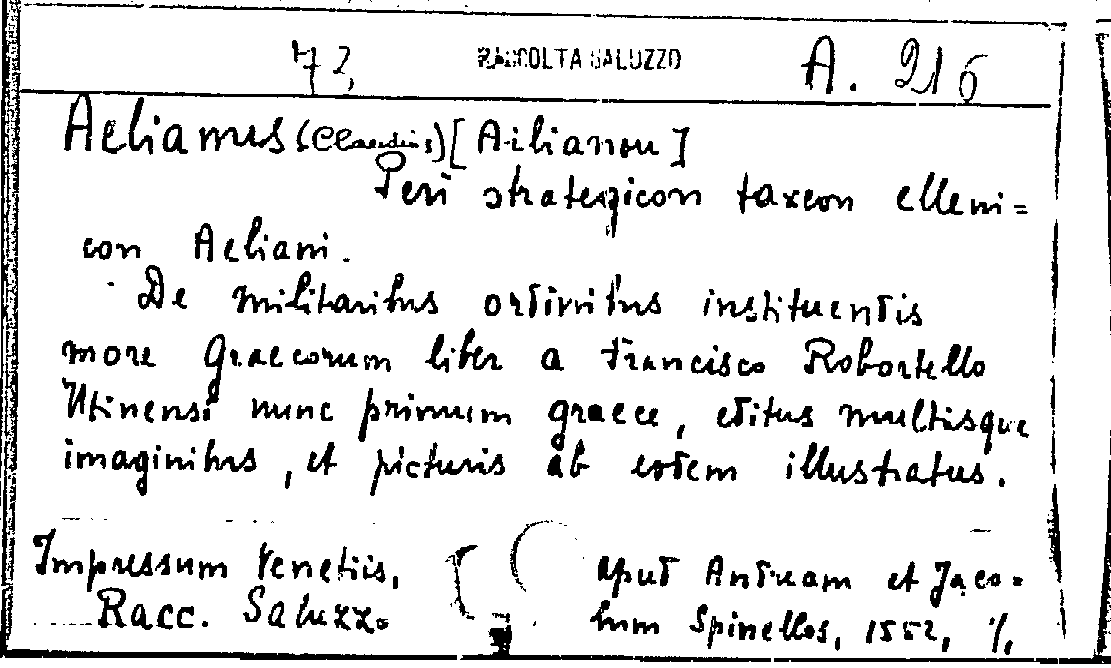 72, RACCOLTA SALUZZO A. 216
Aelianus (Claudius) [Ailianou]
Peri strategicon taxeon elleni=
con Aeliani.
De militaribus ordinibus instituendis
more Graecorum liber a Francisco Robortello
Utinensi nunc primum graece, editus multisque
imaginibus, et picturis ab eodem illustratus.
Impressum Venetiis, apud Andream et Jaco=
bum Spinellos, 1552, %
Racc. Saluzzo